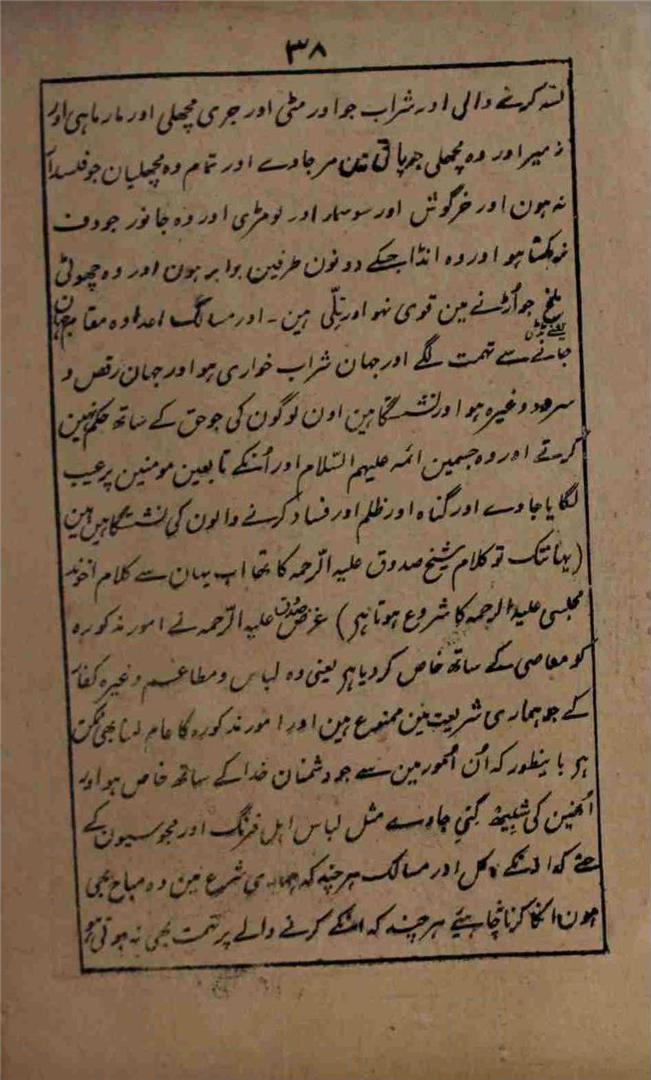 ۳۸
نشہ کرنے والی اور شراب جو اور مٹی اور جری مچھلی اور مار ماہی اور
زمیر اور وہ مچھلی جو پانی مین مر جاوے اور تمام وہ مچھلیان جو فلسدار
نہ ہون اور خرگوش اور سوسمار اور لومڑی اور وہ جانور جو دف
نہ رکھتا ہو اور وہ انڈا جسکے دونون طرفین برابر ہون اور وہ چھوٹی
جو اُڑنے مین قوی نہو اور بلّی ہین۔ اور مسالک اعدا وہ مقامہین جہان
جانے سے تہمت لگے اور جہان شراب خواری ہو اور جہان رقص و
سرود وغیرہ ہو اور نشستگاہین اون لوگون کی جو حق کے ساتھ حکم نہین
کرتے اور وہ جسمین ائمہ علیہم السّلام اور اُنکے تابعین مومنین پر عیب
لگایا جاوے اور گناہ اور ظلم اور فساد کرنے والون کی نشستگاہین ہین
(یہانتک تو کلام شیخ صدوق علیہ الرّحمہ کا تھا اب یہان سے کلام اخوند
مجلسی علیہ الرحمہ کا شروع ہوتا ہے) غرض صدوق علیہ الرّحمہ نے امور مذکورہ
کو معاصی کے ساتھ خاص کر دیا ہے یعنی وہ لباس و مطاعم وغیرہ کفار
کے جو ہماری شریعت مین ممنوع ہین اور امور مذکورہ کا عام لینا بھی ممکن
ہے باینطور کہ اُن اُمور مین سے جو دشمنان خدا کے ساتھ خاص ہو اور
اُنھین کی شبیھ گنی جاوے مثل لباس اہل فرنگ اور مجوسیون کے
حتے کہ انکے ماکل اور مسالک ہر چند کہ ہماری شرع مین وہ مباح بھی
ہون انکا کرنا نچاہیئے ہر چند کہ اسکے کرنے والے پر تہمت بھی نہ ہوتی ہو